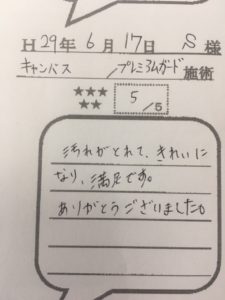 H29年6月17日 S様
キャンバス/プレミアムガード施術
★★★
★★
5/5
汚れがとれて、きれいに
なり、満足です。
ありがとうございました。